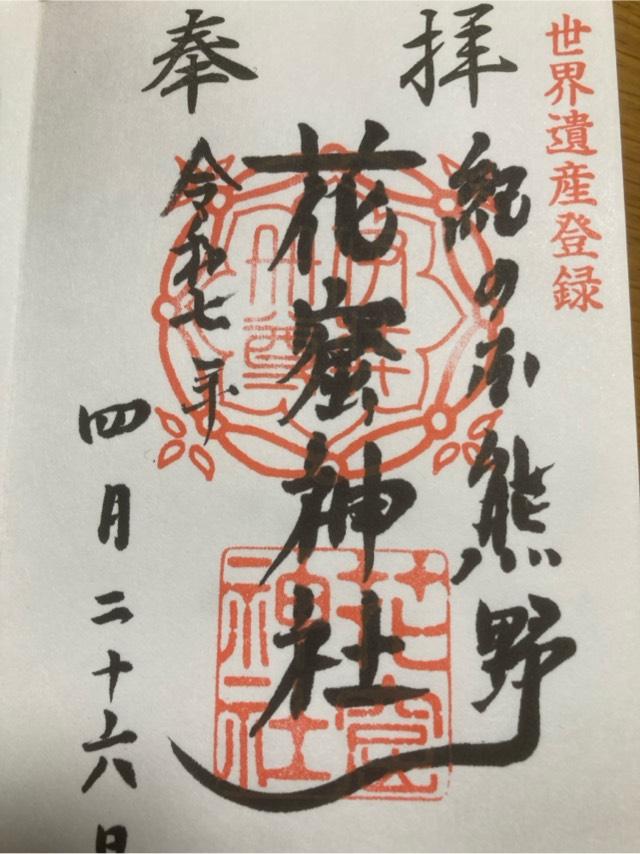 世界遺産登録
奉拝
紀の国熊野
花窟神社
令和七年
四月二十六日
花窟
神社